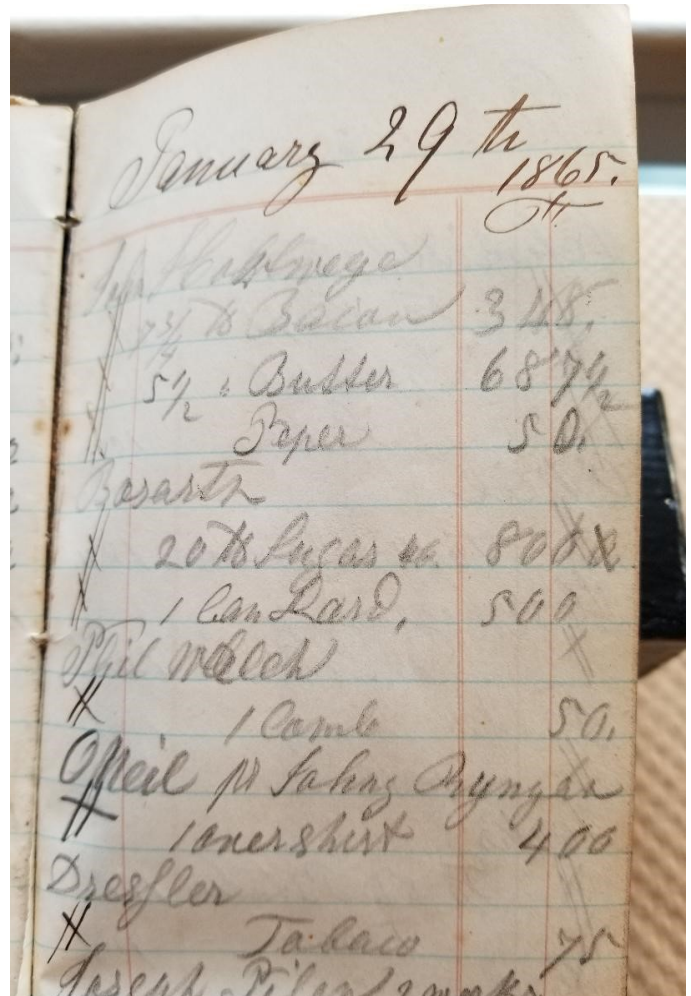 January 29th
1865.
7 3/4 lb Bacon 3 48.
5 1/2 " Butter 6 87 1/2
Peper 50.
Bosarth
20 lb Sugar 8 00
1 Can Lard, 5 00
Phil Welch
1 Comb 50.
ONeil pr Johny Rynyan
1 overshirt 4 00
Dressler
Tobaco 75
Joseph